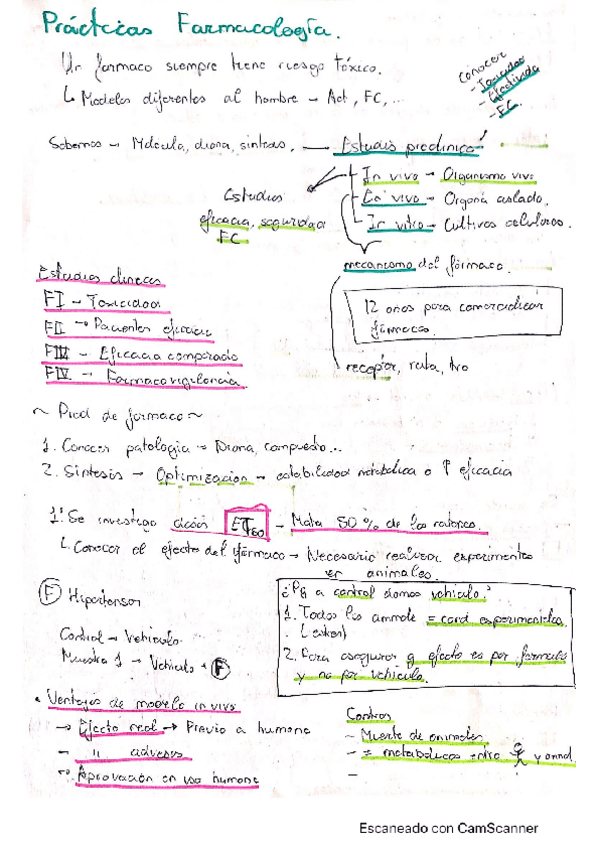 Prácticas Farmacología.
Un farmaco siempre tiene riesgo tóxico.
↳ Modelos diferentes al hombre - Act, FC,...
Conocer
- Toxicidad
- Efectividad
- FC.
Sabemos - Molécula, diana, sintesis, — Estudios preclinicos
In vivo - Organismo vivo
Ex vivo - Organo aislado.
In vitro - Cultivos celulares.
Estudios
eficacia, seguridad
FC
mecanismo del fármaco.
12 años para comercializar
fármacos.
receptor, ruta,
Estudios clinicos
FI - Toxicidad
FII - Pacientes eficacia
FIII - Eficacia comparada
FIV - Farmacovigilancia
~ Prod de farmaco ~
1. Conocer patologia - Diana, compuesto...
2. Sintesis → Optimización - estabilidad metabólica o ↑ eficacia
1º Se investiga - Mata 50% de los ratones.
↳ Conocer el efecto del fármaco → Necesario realizar experimentos
en animales.
(F) Hipertensor
Control - Vehiculo
Muestra 1 → Vehiculo + (F)
¿Pq a control damos vehiculo?
1. Todos los = cond experimentales
2. Para asegurar q efecto es por farmaco
y no por vehiculo.
• Ventajas de modelo in vivo
→ Efecto real → Previo a humano
- " adversos
→ Aprovación en uso humano
Contras
- Muerte de animales
- = metabolicas entre y
-
Escaneado con CamScanner